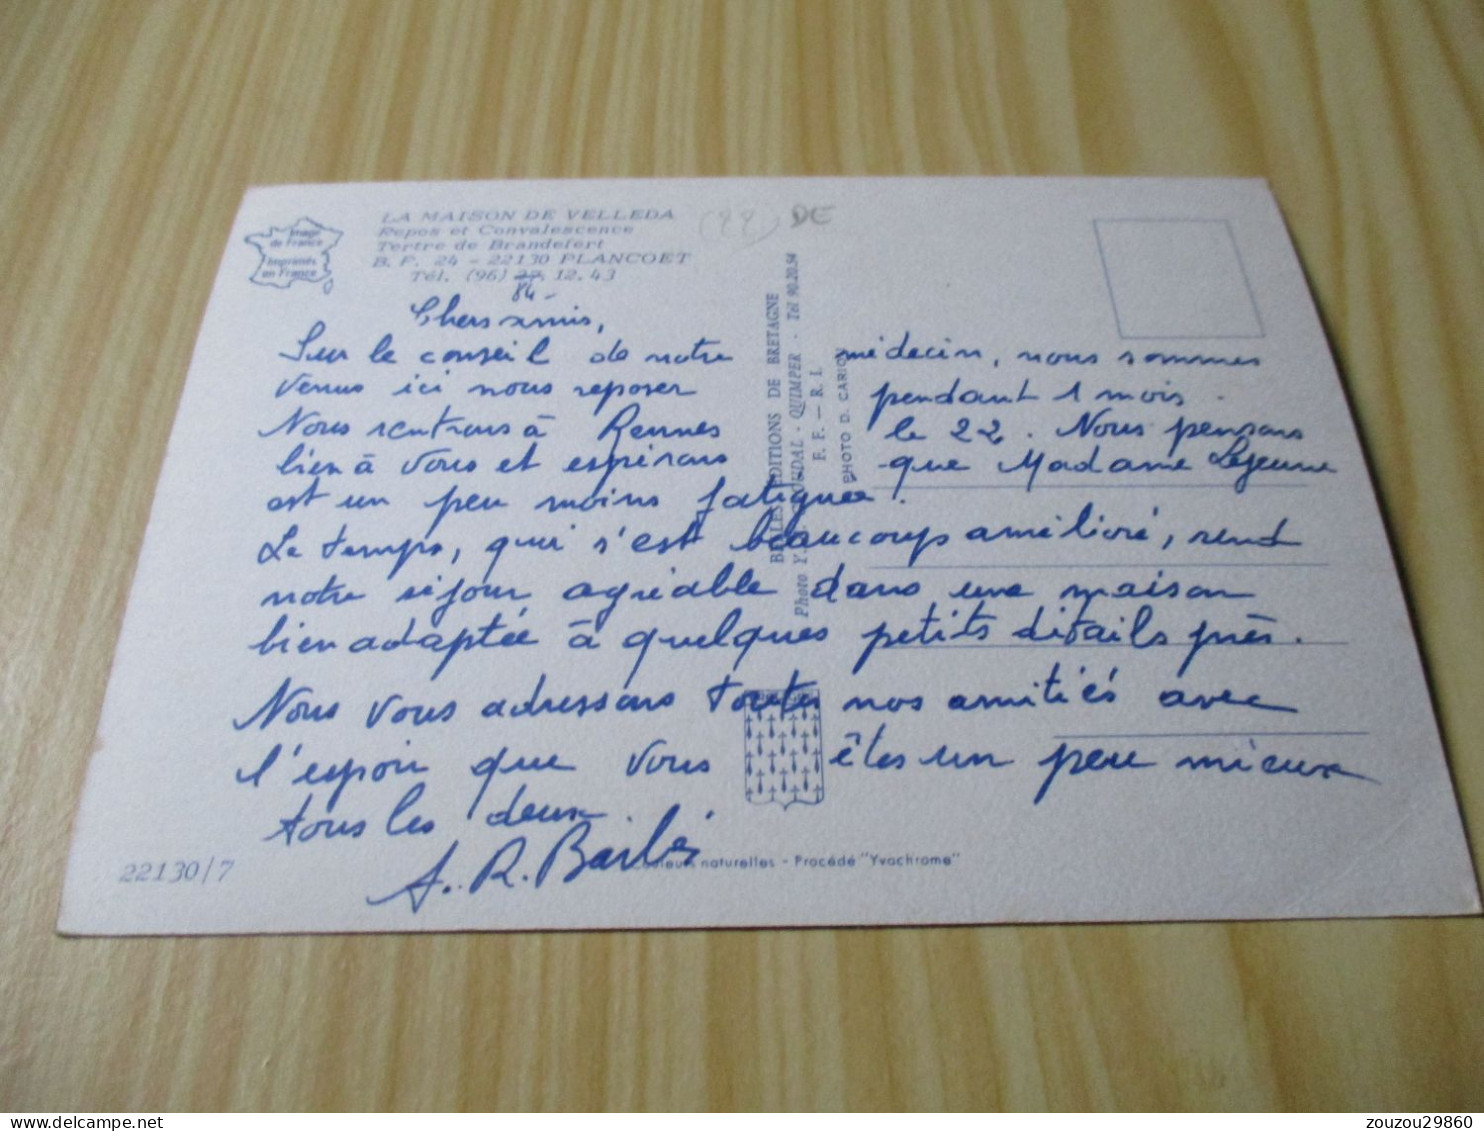 LA MAISON DE VELLEDA
Repos et Convalescence
Tertre de Brandefert
B. P. 24 - 22130 PLANCOET
Tél. (96) 27. 12.43
84 -
(22) DE
Image
de France
Imprimés
en France
Chers amis,
Sur le conseil de notre médecin, nous sommes
venus ici nous reposer pendant 1 mois.
Nous rentrons à Rennes le 22. Nous pensons
bien à vous et espérons que Madame Lejeune
est un peu moins fatiguée.
Le temps, qui s'est beaucoup amélioré, rend
notre séjour agréable dans une maison
bien adaptée à quelques petits détails près.
Nous vous adressons toutes nos amitiés avec
l'espoir que vous êtes un peu mieux
tous les deux.
A. R. Barbé
BELLES EDITIONS DE BRETAGNE
Photo Y. - QUIMPER - Tél 90.20.94
F. F. — R. I.
PHOTO D. CARIOU
22130/7
Couleurs naturelles - Procédé "Yvochrome"
zouzou29860